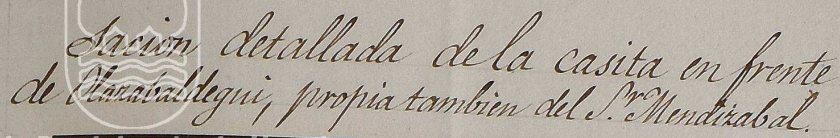 Tacion detallada de la casita en frente
de Olazabaldegui, propia tambien del S.r Mendizabal.